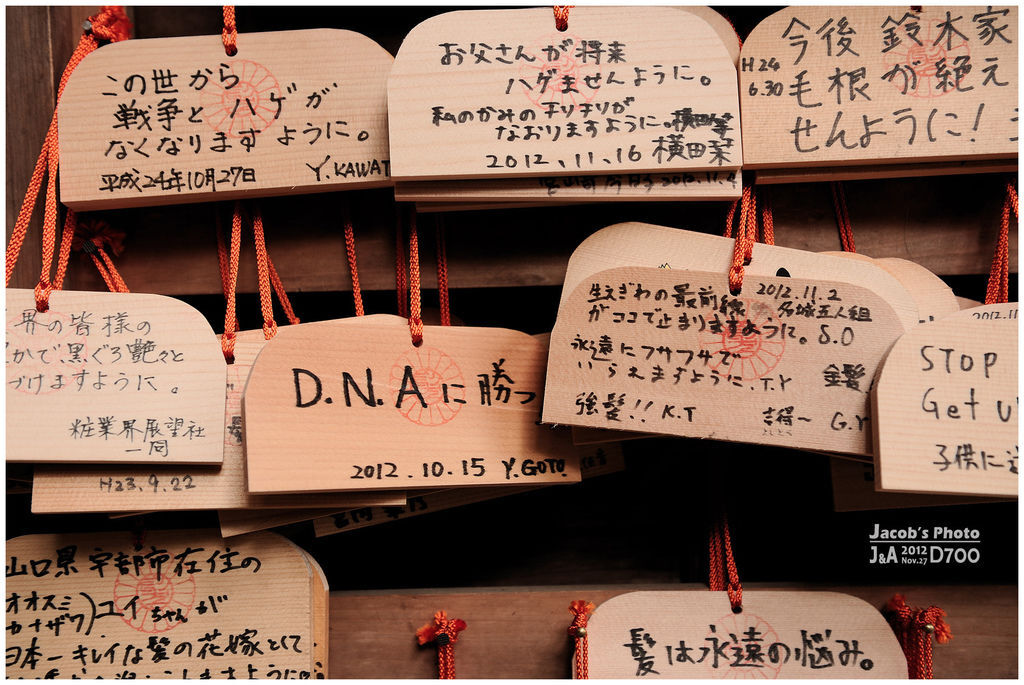 この世から
戦争とハゲが
なくなりますように。
平成24年10月27日 Y.KAWAT
お父さんが将来
ハゲませんように。
私のかみのチリチリが
なおりますように。
2012.11.16 横田栞
今後 鈴木家
H24 6.30 毛根が絶え
せんように!
界の皆様の
かで、黒ぐろ艶々と
づけますように。
粧業界展望社
一同
H23.9.22
D.N.Aに勝つ
2012.10.15 Y.GOTO
2012.11.2
生えぎわの最前線 名城五人組
がココで止まりますように。S.O
永遠にフサフサで
いられますように.T.Y 金髪
強髪!! K.T 吉得〜 G.Y
2012.11
STOP
Get u
子供に
山口県宇部市在住の
オオスミ
カナザワ)ユイちゃんが
日本一キレイな髪の花嫁として
髪は永遠の悩み。
Jacob's Photo
J&A 2012 Nov.27 D700